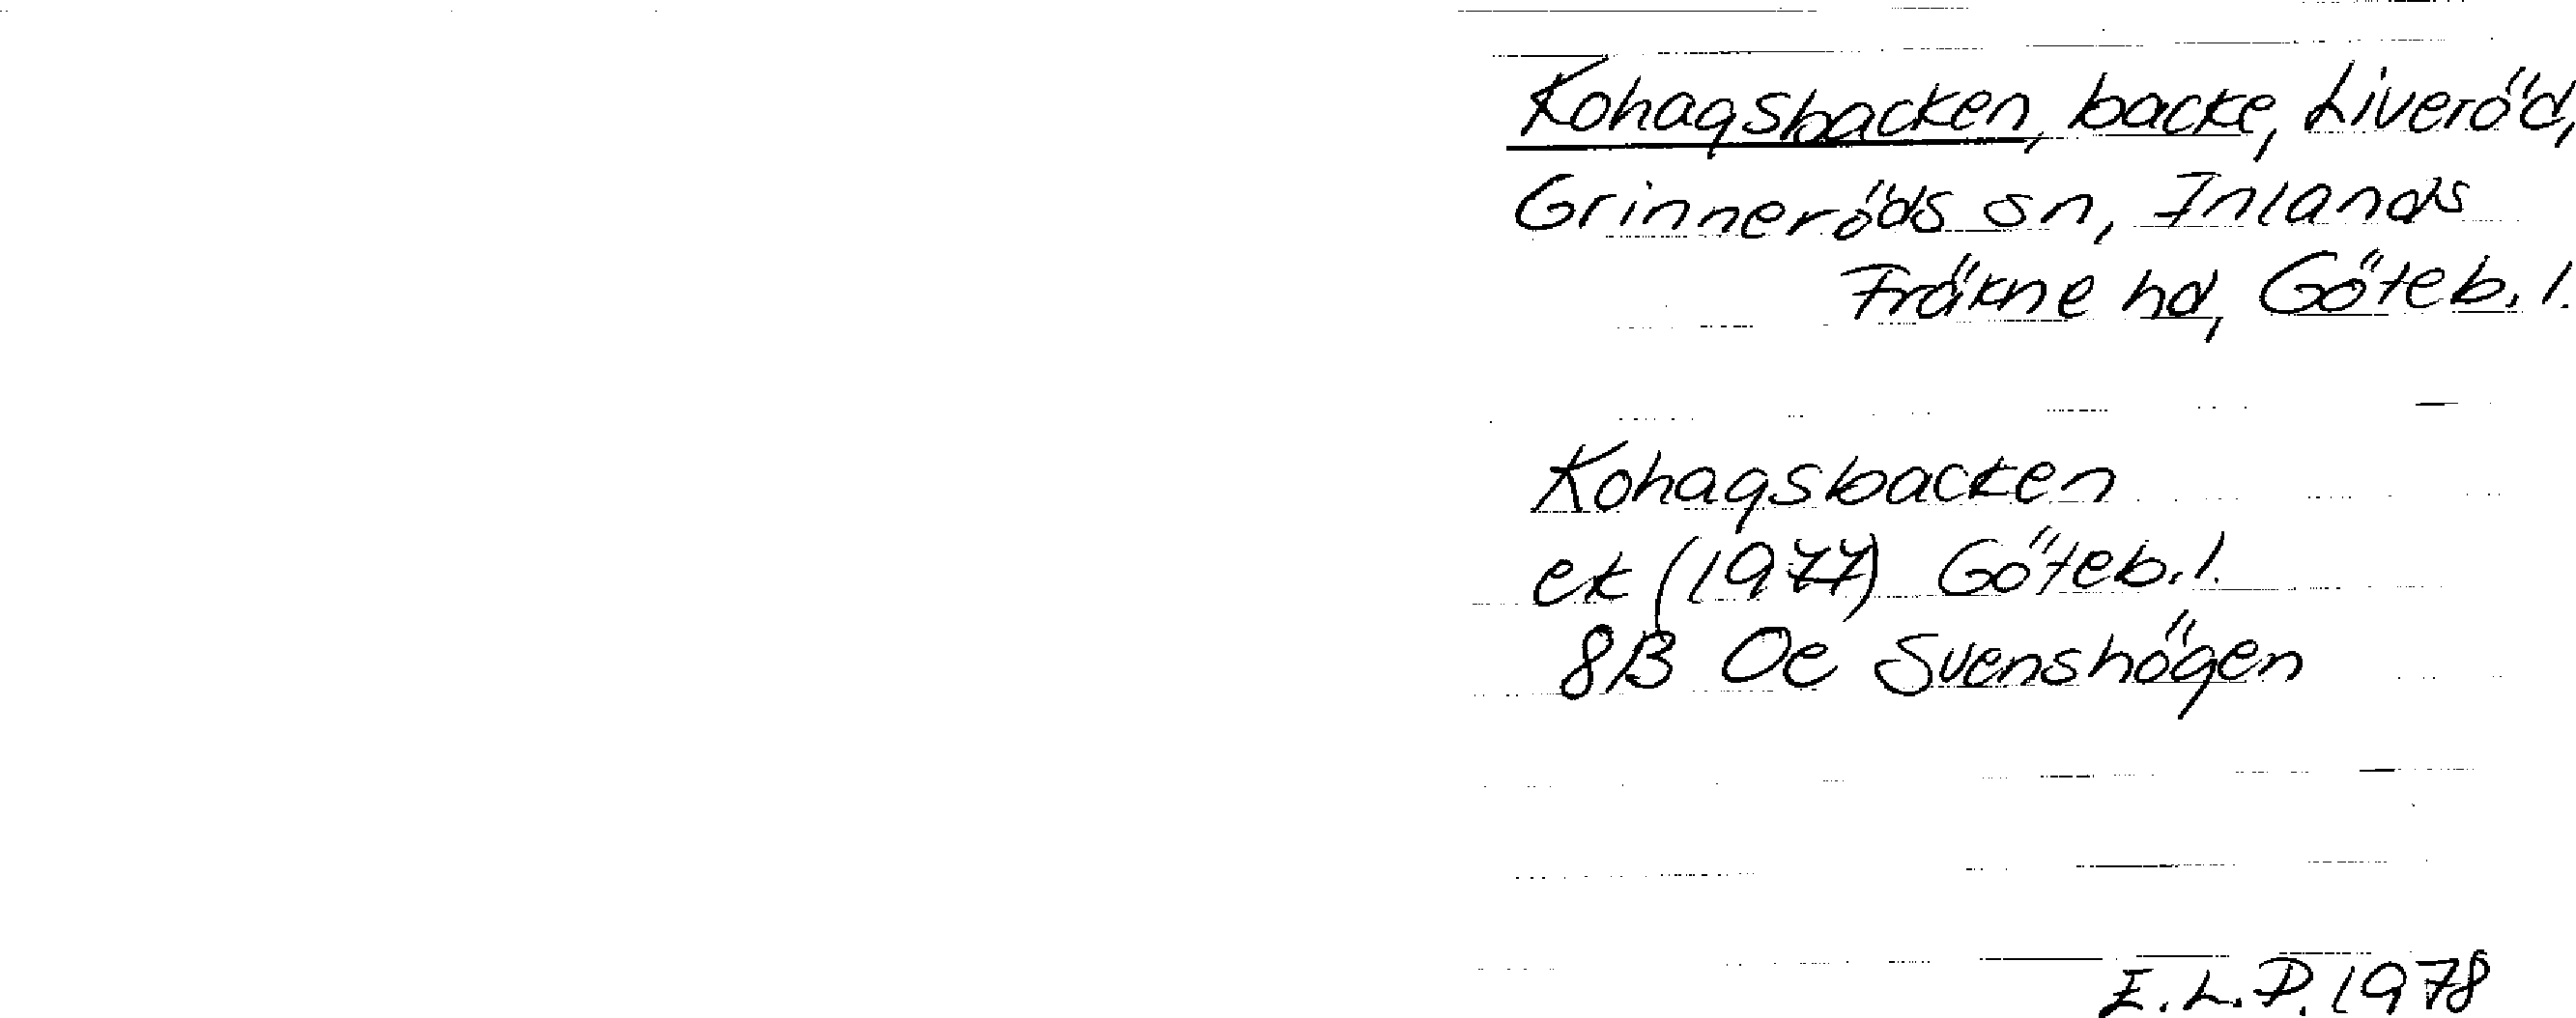 Kohagsbacken, backe, Liveröd,
Grinneröds sn, Inlands
Fräkne hd, Göteb. l.
Kohagsbacken
ek (1977) Göteb. l.
8B Oe Svenshögen
E. L. P. 1978